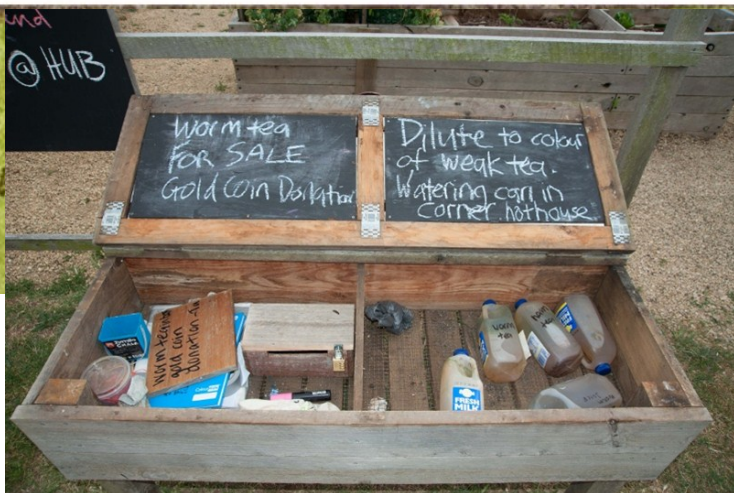 and
@ HUB
Worm tea
FOR SALE
Gold Coin Donation
Dilute to colour
of weak tea.
Watering can in
corner hothouse
worm tea
gold coin
donation
FRESH
MILK
worm
tea